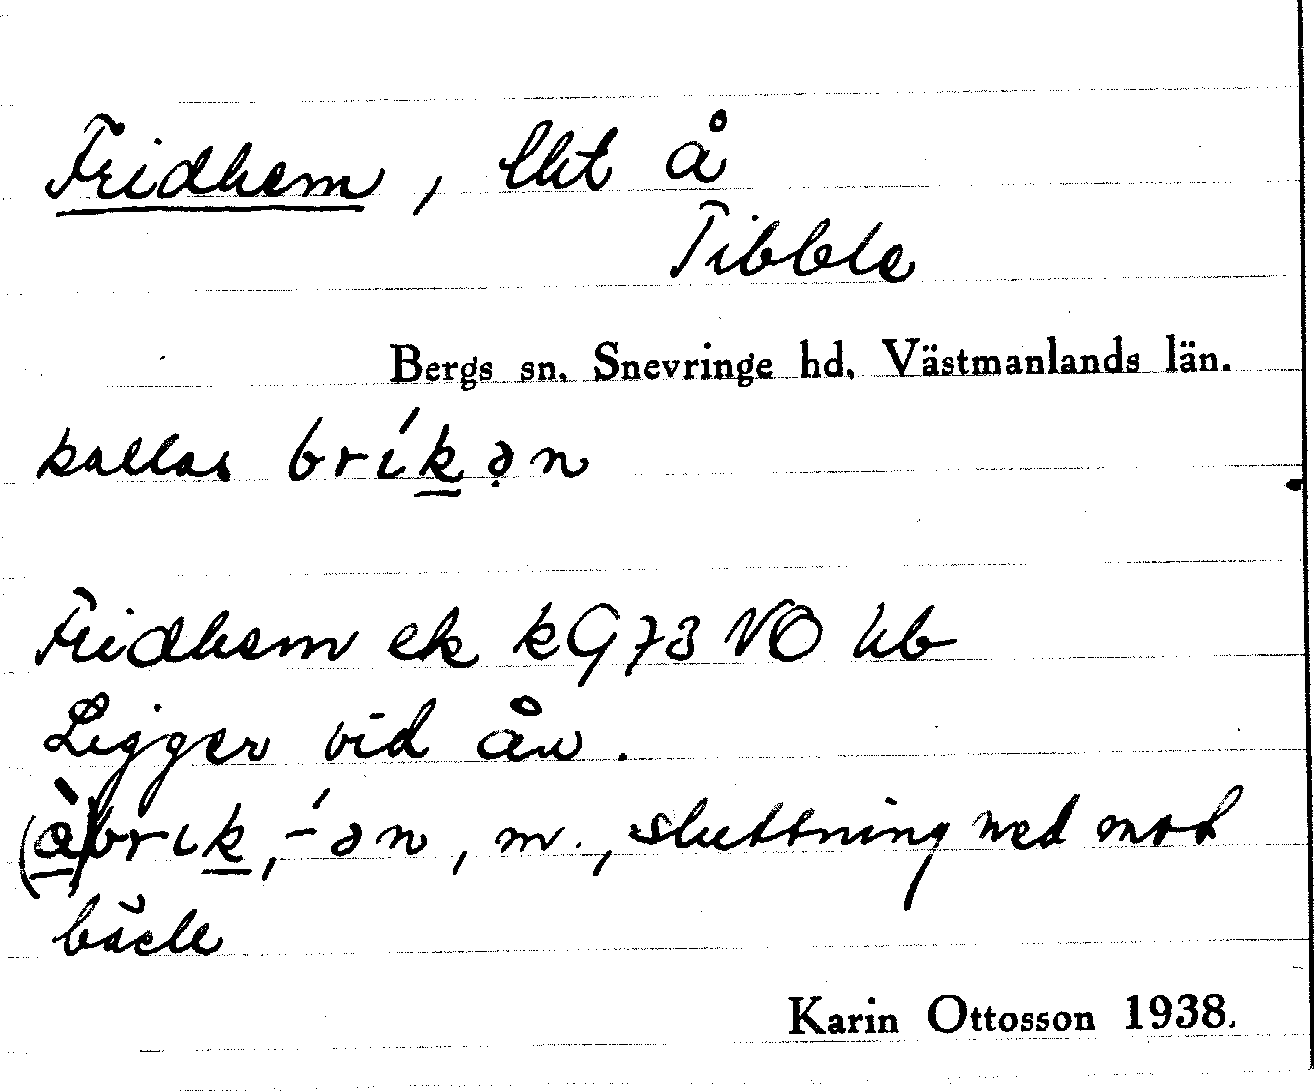 Fridhem, lht å
Tibble
Bergs sn. Snevringe hd. Västmanlands län.
kallas bríkən
Fridhem ek kG73 NO hb
Ligger vid ån.
(à)brik, -́ən, m., sluttning ned mot
bäck
Karin Ottosson 1938.